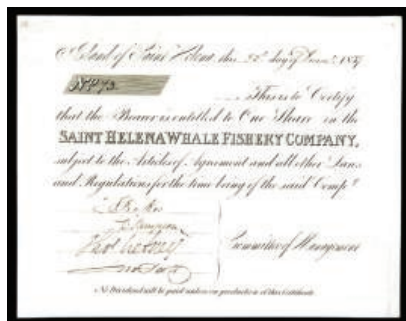 Island of Saint Helena, this 22d day of 1837
No. 73.
This is to Certify
that the Bearer is entitled to One Share in the
SAINT HELENA WHALE FISHERY COMPANY,
subject to the Articles of Agreement and all other Laws
and Regulations for the time being of the said Compy.
Committee of Management
No Dividend will be paid unless on production of this Certificate.